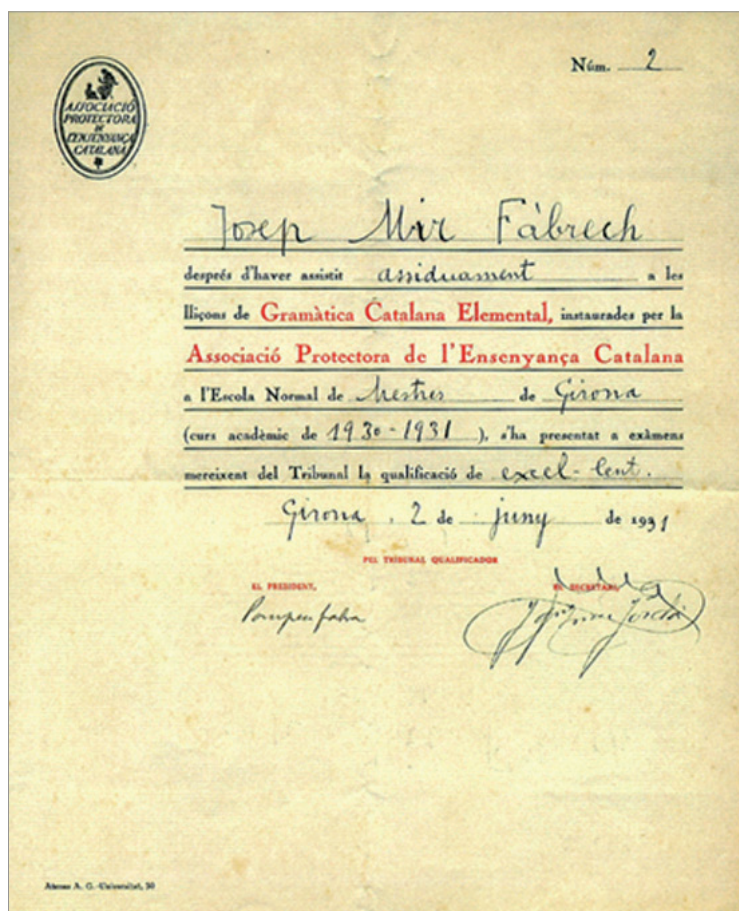 Núm. 2
ASSOCIACIÓ
PROTECTORA
DE
L'ENSENYANÇA
CATALANA
Josep Mir Fàbrech
després d'haver assistit assiduament a les
lliçons de Gramàtica Catalana Elemental, instaurades per la
Associació Protectora de l'Ensenyança Catalana
a l'Escola Normal de Mestres de Girona
(curs acadèmic de 1930-1931), s'ha presentat a exàmens
mereixent del Tribunal la qualificació de excel-lent.
Girona, 2 de juny de 1931
PEL TRIBUNAL QUALIFICADOR
EL PRESIDENT, EL SECRETARI,
Pompeu fabra
Atenas A. G.-Universitat, 50